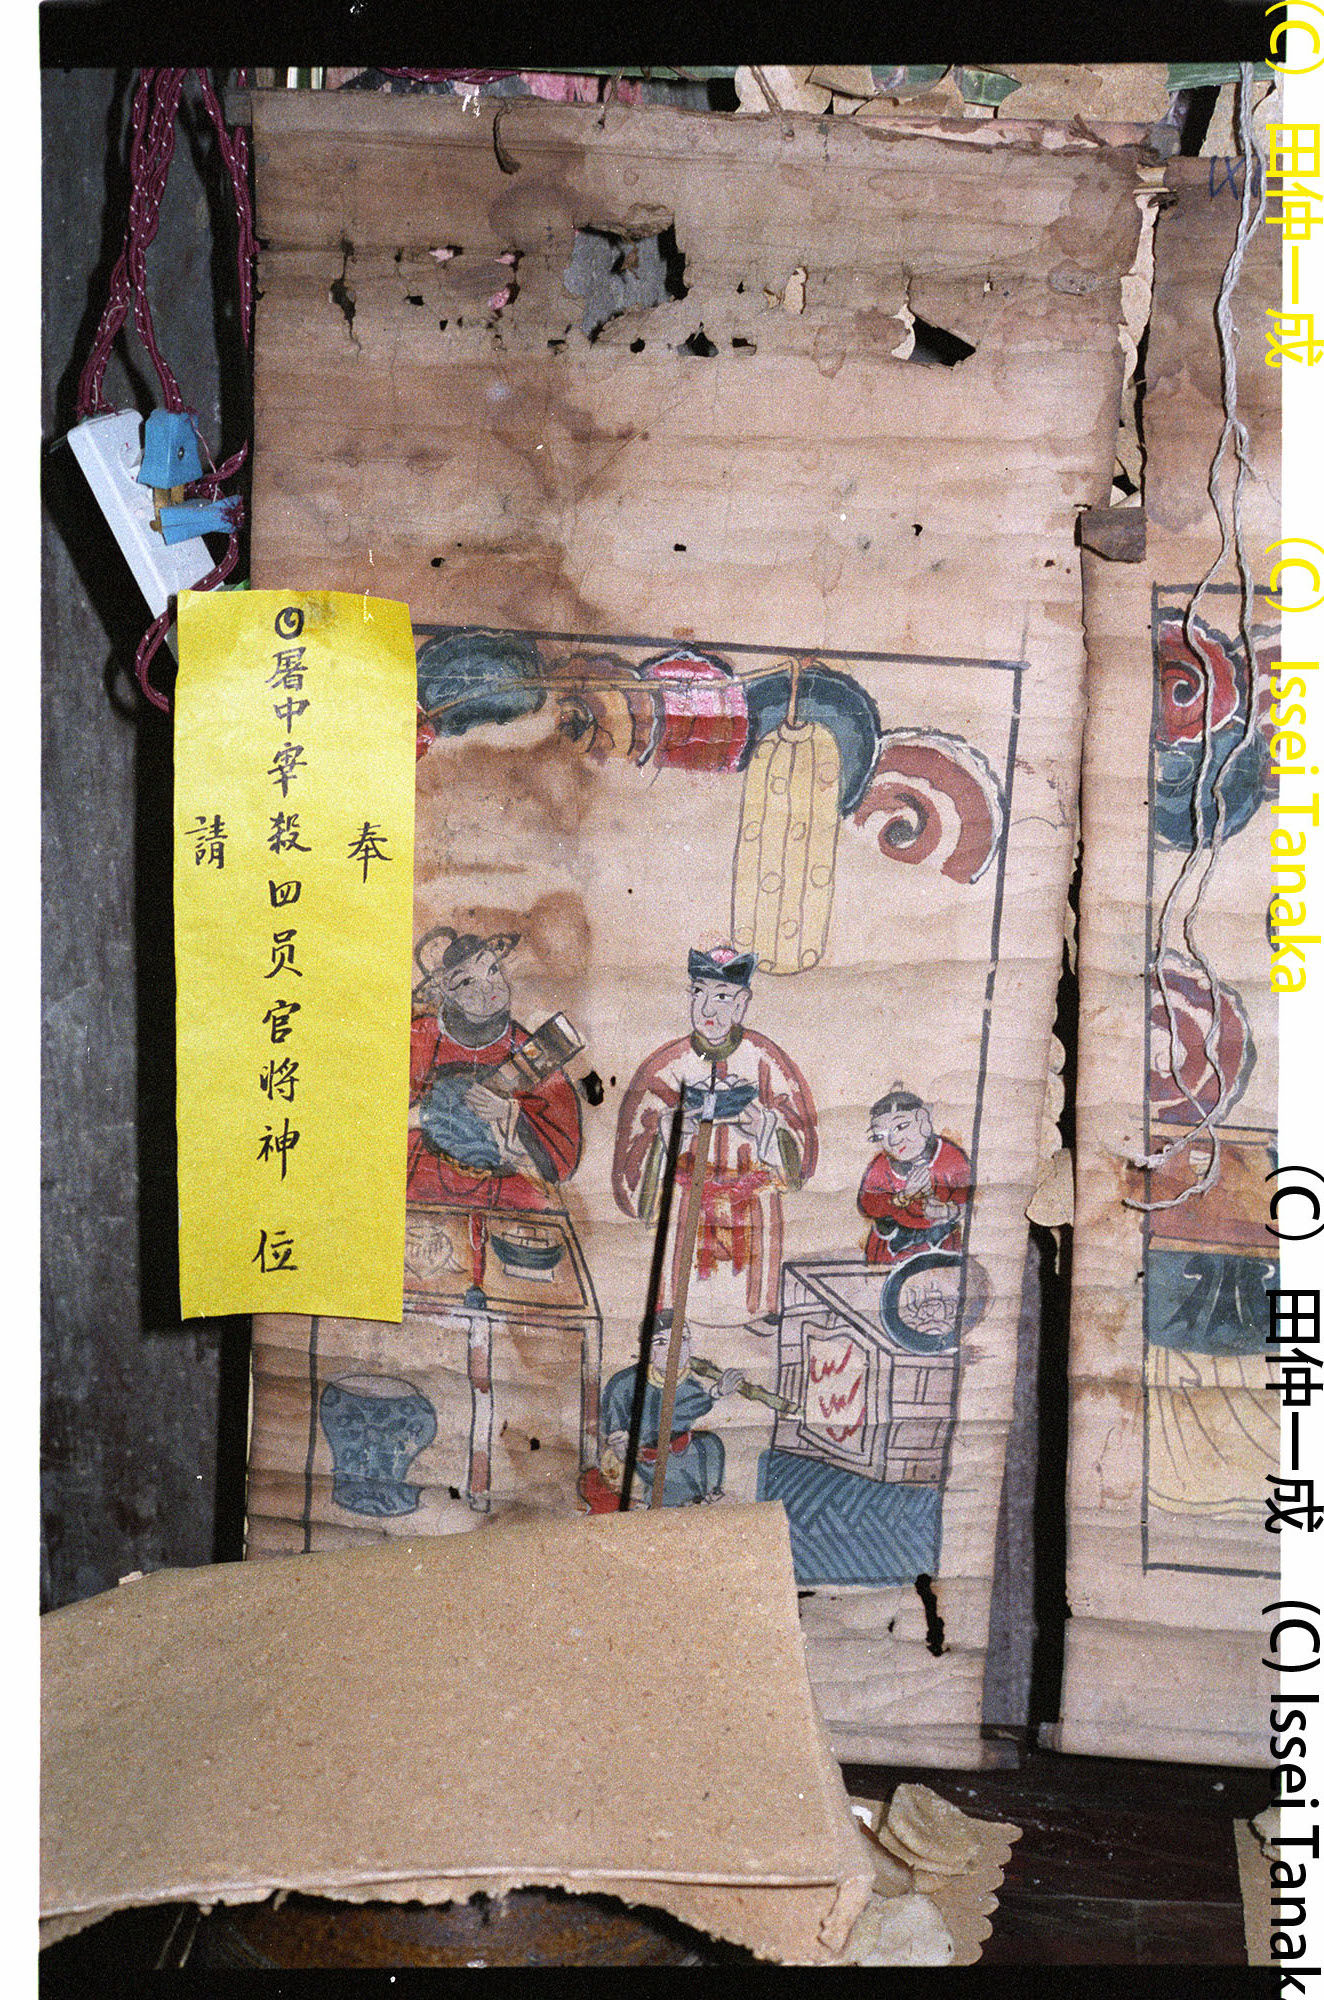 奉
◎暑中宰殺四员官将神位
請
(C) 田仲一成 (C) Issei Tanaka
(C) 田仲一成 (C) Issei Tanak